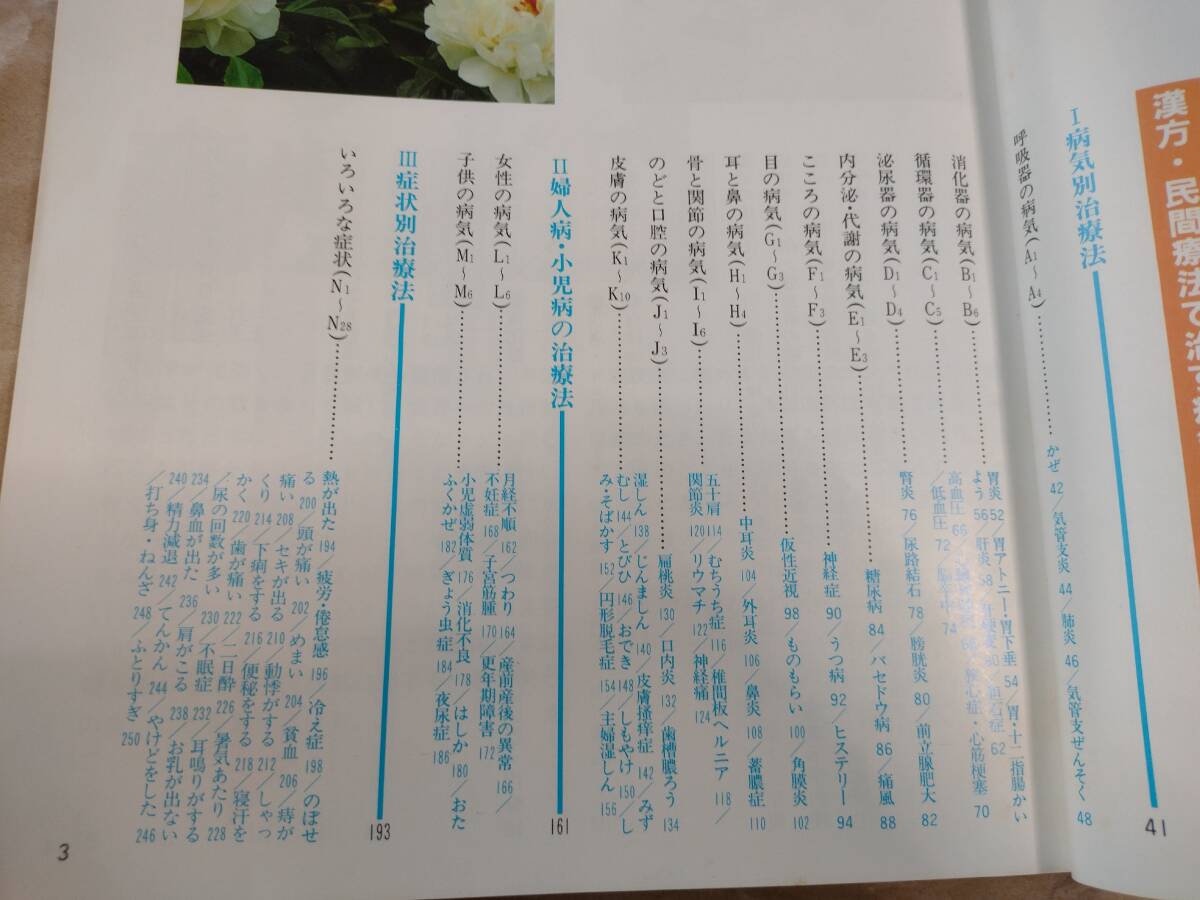 漢方・民間療法で治す
Ⅰ病気別治療法
41
呼吸器の病気(A1〜A4)
かぜ 42/気管支炎 44/肺炎 46/気管支ぜんそく 48
消化器の病気(B1〜B6)
胃炎 52/胃アトニー・胃下垂 54/胃・十二指腸かい
よう 56/肝炎 58/胆石症 62
循環器の病気(C1〜C5)
高血圧 66/狭心症・心筋梗塞 70
/低血圧 72/脳卒中 74
泌尿器の病気(D1〜D4)
腎炎 76/尿路結石 78/膀胱炎 80/前立腺肥大 82
内分泌・代謝の病気(E1〜E3)
糖尿病 84/バセドウ病 86/痛風 88
こころの病気(F1〜F3)
神経症 90/うつ病 92/ヒステリー 94
目の病気(G1〜G3)
仮性近視 98/ものもらい 100/角膜炎 102
耳と鼻の病気(H1〜H4)
中耳炎 104/外耳炎 106/鼻炎 108/蓄膿症 110
骨と関節の病気(I1〜I6)
五十肩 114/むちうち症 116/椎間板ヘルニア 118/
関節炎 120/リウマチ 122/神経痛 124
のどと口腔の病気(J1〜J3)
扁桃炎 130/口内炎 132/歯槽膿ろう 134
皮膚の病気(K1〜K10)
湿しん 138/じんましん 140/皮膚掻痒症 142/みず
むし 144/とびひ 146/おでき 148/しもやけ 150/し
み・そばかす 152/円形脱毛症 154/主婦湿しん 156
Ⅱ婦人病・小児病の治療法
161
女性の病気(L1〜L6)
月経不順 162/つわり 164/産前産後の異常 166/
不妊症 168/子宮筋腫 170/更年期障害 172
子供の病気(M1〜M6)
小児虚弱体質 176/消化不良 178/はしか 180/おた
ふくかぜ 182/ぎょう虫症 184/夜尿症 186
Ⅲ症状別治療法
193
いろいろな症状(N1〜N28)
熱が出た 194/疲労・倦怠感 196/冷え症 198/のぼせ
る 200/頭が痛い 202/めまい 204/貧血 206/痔が
痛い 208/セキが出る 210/動悸がする 212/しゃっ
くり 214/下痢をする 216/便秘をする 218/寝汗を
かく 220/歯が痛い 222/二日酔 226/暑気あたり 228
/尿の回数が多い 230/不眠症 232/耳鳴りがする
234/鼻血が出た 236/肩がこる 238/お乳が出ない
240/精力減退 242/てんかん 244/やけどをした 246
/打ち身・ねんざ 248/ふとりすぎ 250
3